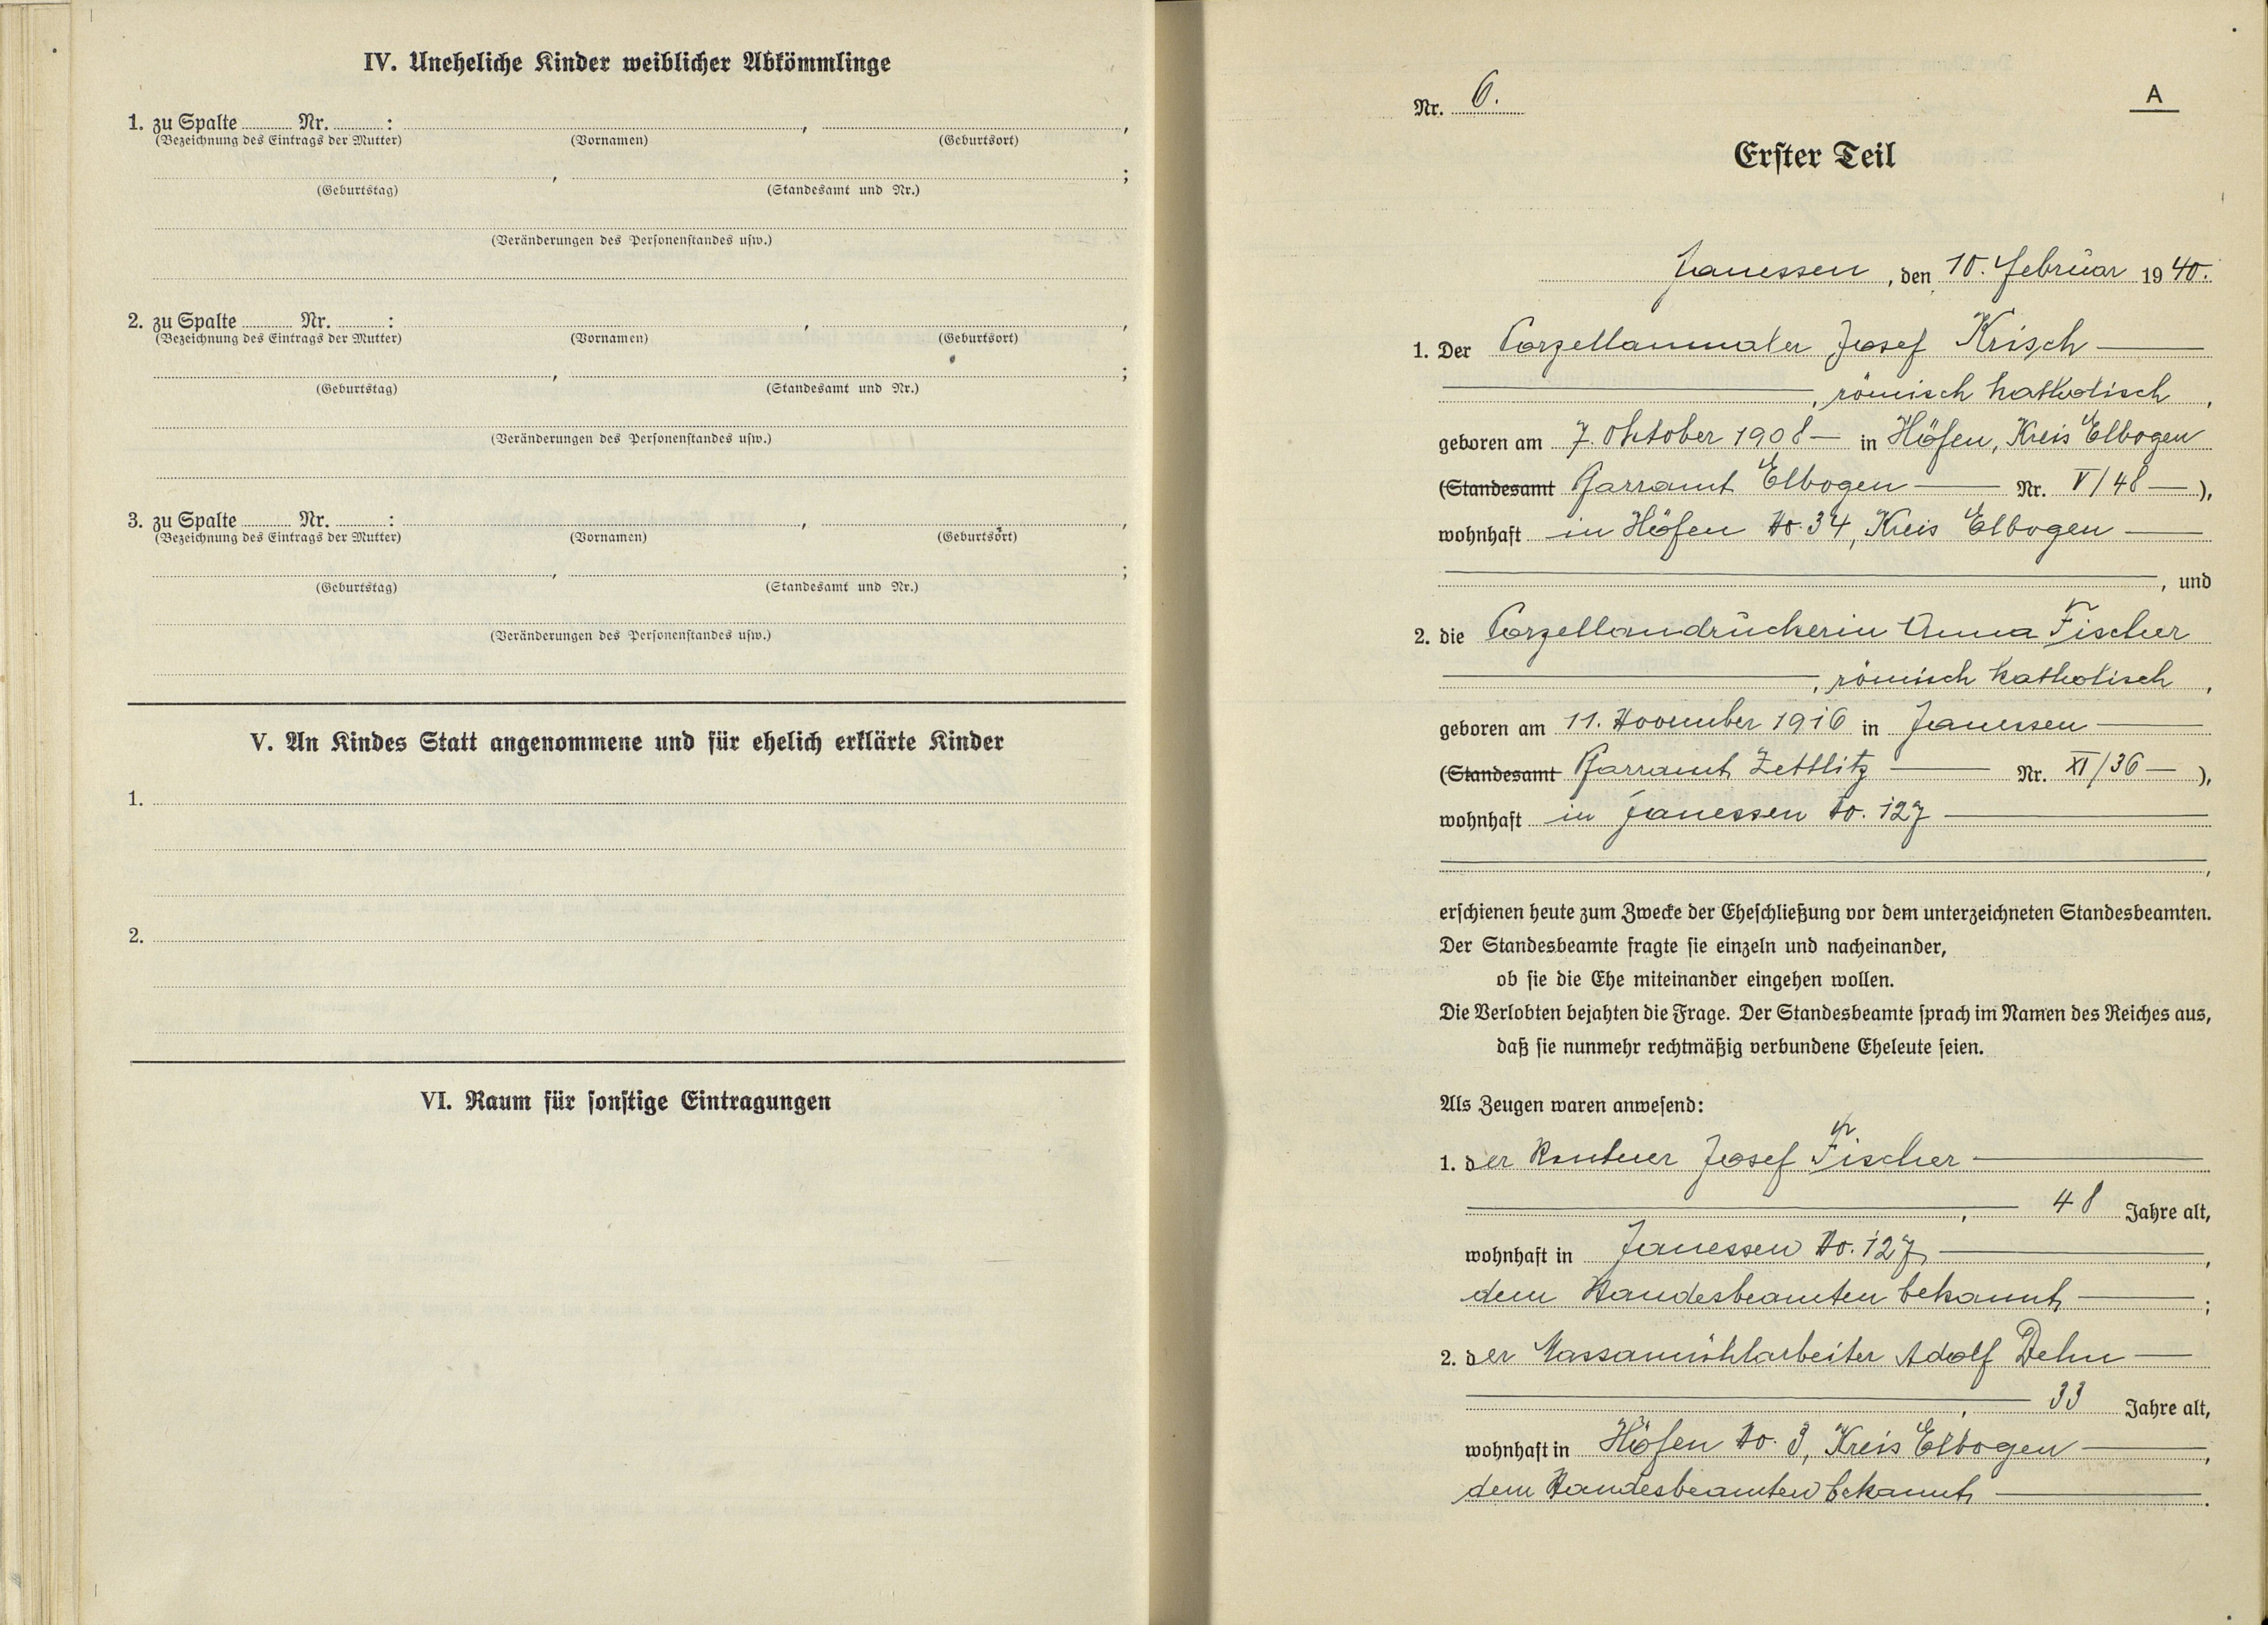 IV. Uneheliche Kinder weiblicher Abkömmlinge
1. zu Spalte ........ Nr. ........ : ........, ........,
(Bezeichnung des Eintrags der Mutter) (Vornamen) (Geburtsort)
........, ........;
(Geburtstag) (Standesamt und Nr.)
(Veränderungen des Personenstandes usw.)
2. zu Spalte ........ Nr. ........ : ........, ........,
(Bezeichnung des Eintrags der Mutter) (Vornamen) (Geburtsort)
........, ........;
(Geburtstag) (Standesamt und Nr.)
(Veränderungen des Personenstandes usw.)
3. zu Spalte ........ Nr. ........ : ........, ........,
(Bezeichnung des Eintrags der Mutter) (Vornamen) (Geburtsort)
........, ........;
(Geburtstag) (Standesamt und Nr.)
(Veränderungen des Personenstandes usw.)
V. An Kindes Statt angenommene und für ehelich erklärte Kinder
1.
2.
VI. Raum für sonstige Eintragungen
A
Nr. 6.
Erster Teil
Janessen, den 10. Februar 1940.
1. Der Porzellanmaler Josef Krisch —
—, römisch katholisch,
geboren am 7. Oktober 1908 — in Höfen, Kreis Elbogen
(Standesamt Pfarramt Elbogen — Nr. V/48 —),
wohnhaft in Höfen No. 34, Kreis Elbogen —
—, und
2. die Porzellandruckerin Anna Fischer
—, römisch katholisch,
geboren am 11. November 1916 in Janessen —
(Standesamt Pfarramt Zettlitz — Nr. XI/36 —),
wohnhaft in Janessen No. 127 —
—,
erschienen heute zum Zwecke der Eheschließung vor dem unterzeichneten Standesbeamten.
Der Standesbeamte fragte sie einzeln und nacheinander,
ob sie die Ehe miteinander eingehen wollen.
Die Verlobten bejahten die Frage. Der Standesbeamte sprach im Namen des Reiches aus,
daß sie nunmehr rechtmäßig verbundene Eheleute seien.
Als Zeugen waren anwesend:
1. der Rentner Josef Fischer —
—, 48 Jahre alt,
wohnhaft in Janessen No. 127 —,
dem Standesbeamten bekannt —;
2. der Massamühlarbeiter Adolf Dehn —
—, 33 Jahre alt,
wohnhaft in Höfen No. 3, Kreis Elbogen —,
dem Standesbeamten bekannt —.